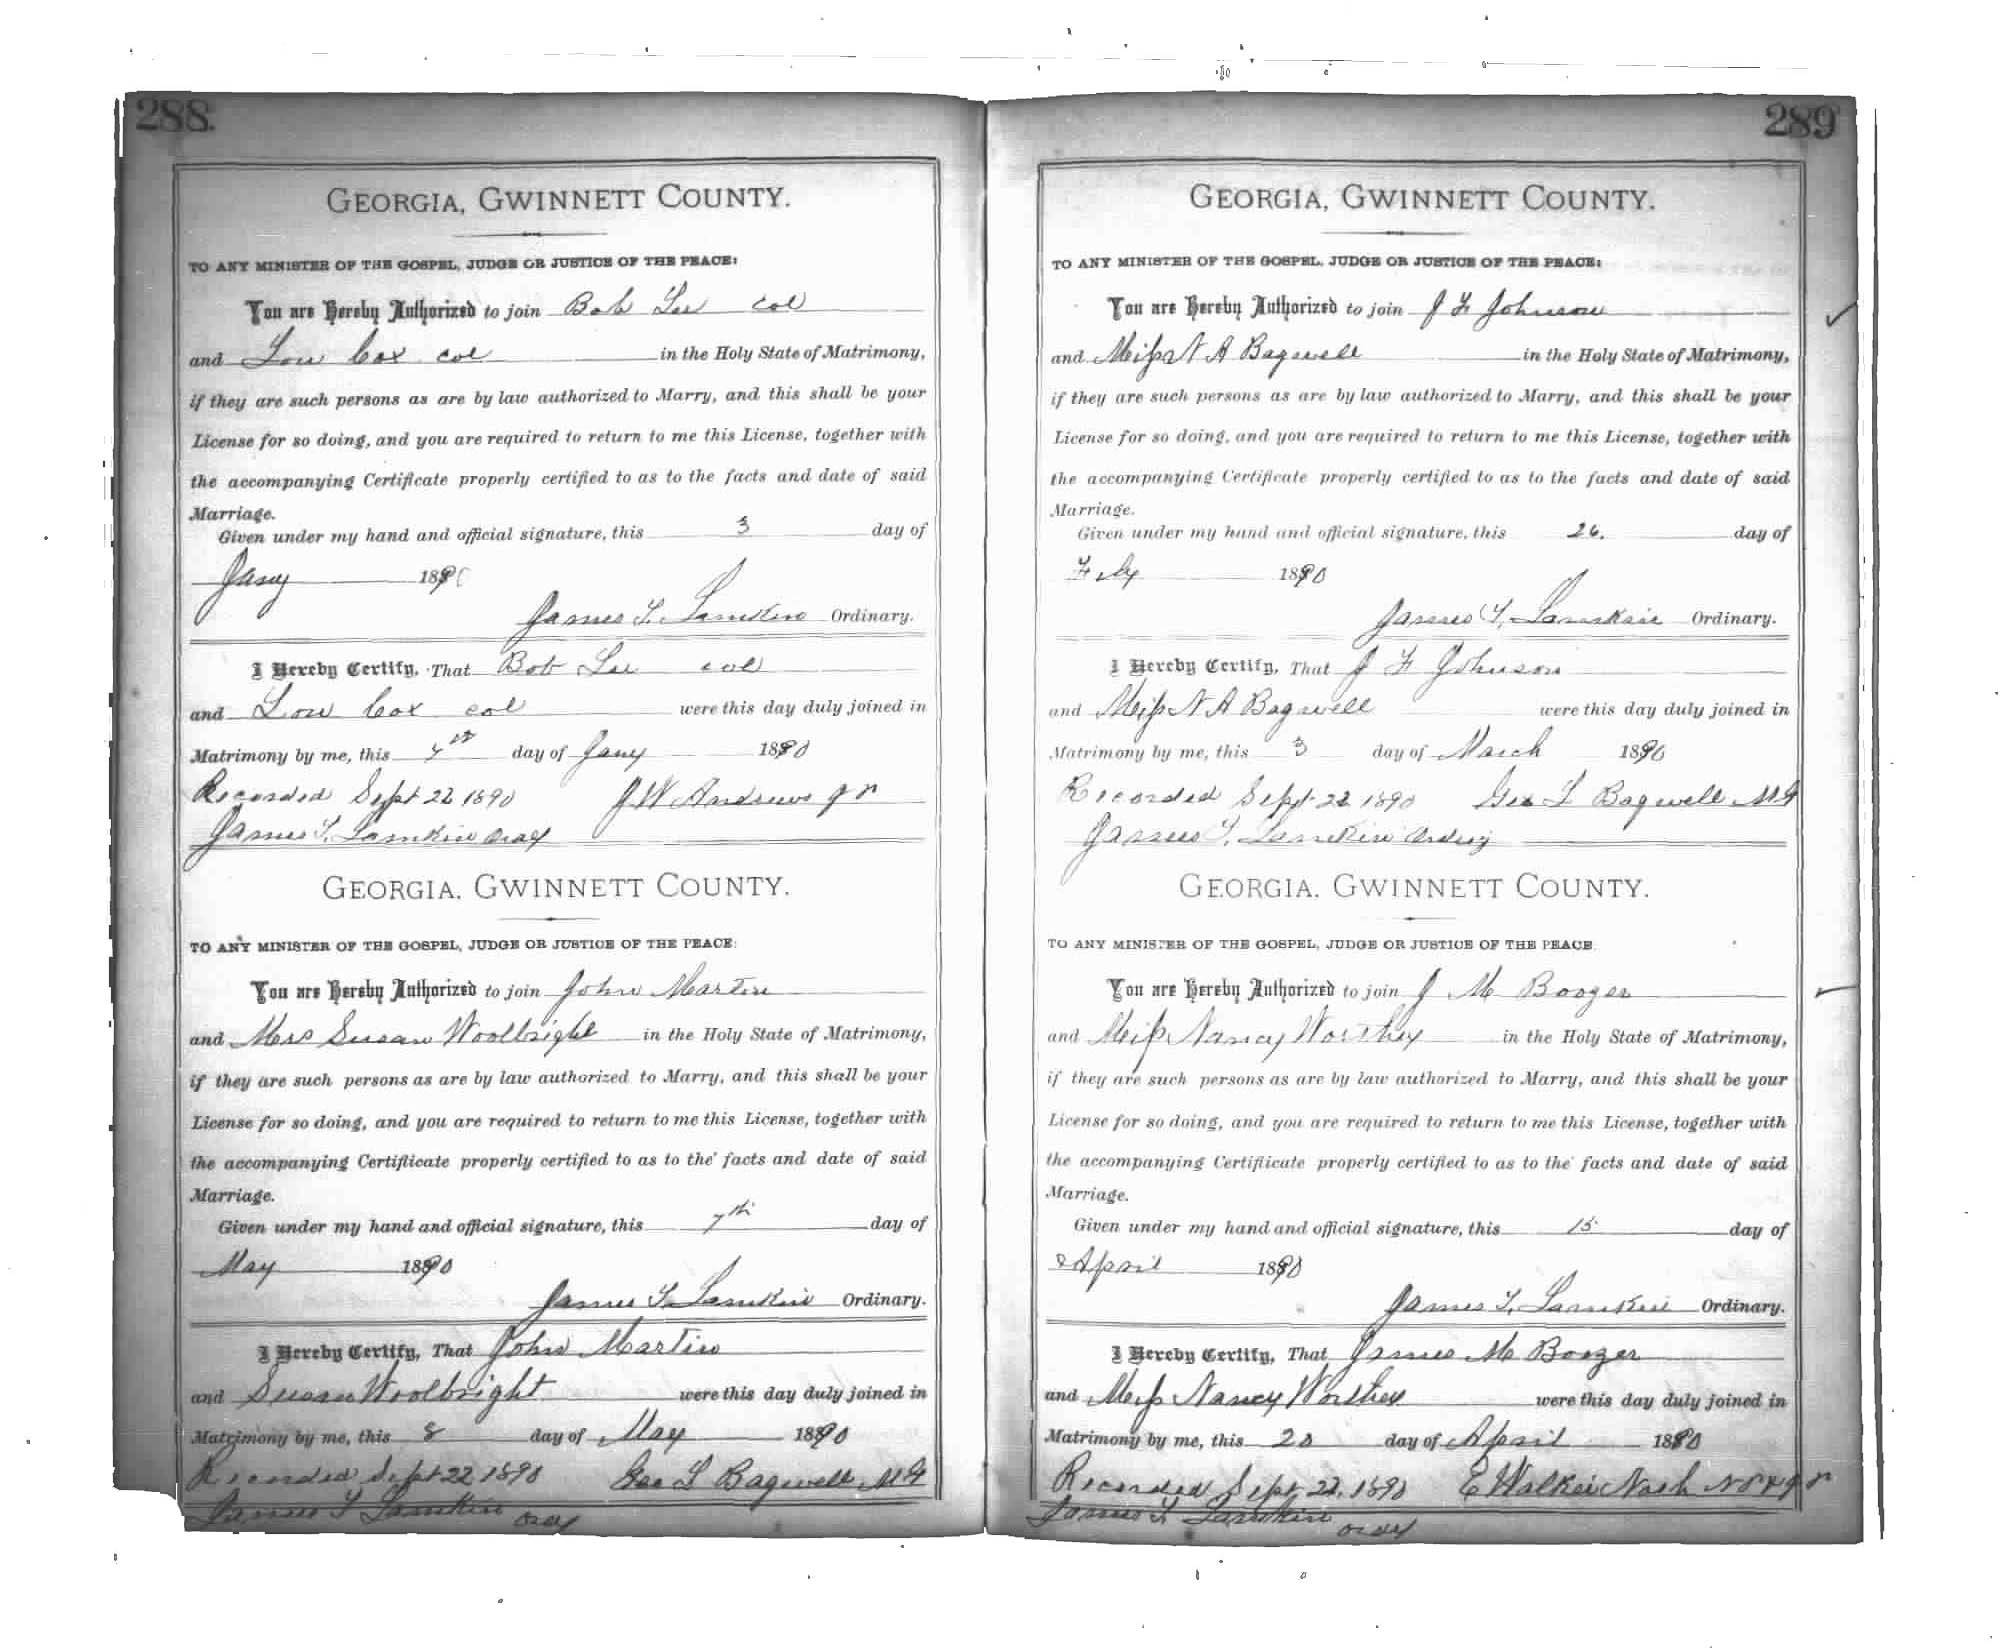 288.
GEORGIA, GWINNETT COUNTY.
TO ANY MINISTER OF THE GOSPEL, JUDGE OR JUSTICE OF THE PEACE:
You are Hereby Authorized to join Bob Lee col
and Lou Cox col in the Holy State of Matrimony,
if they are such persons as are by law authorized to Marry, and this shall be your
License for so doing, and you are required to return to me this License, together with
the accompanying Certificate properly certified to as to the facts and date of said
Marriage.
Given under my hand and official signature, this 3 day of
Jany 1890
James T. Lamkin Ordinary.
I Hereby Certify, That Bob Lee col
and Lou Cox col were this day duly joined in
Matrimony by me, this 4th day of Jany 1890
Recorded Sept 22 1890 J W Andrews J P
James T. Lamkin Ordy
GEORGIA. GWINNETT COUNTY.
TO ANY MINISTER OF THE GOSPEL, JUDGE OR JUSTICE OF THE PEACE:
You are Hereby Authorized to join John Martin
and Mrs Susan Woolbright in the Holy State of Matrimony,
if they are such persons as are by law authorized to Marry, and this shall be your
License for so doing, and you are required to return to me this License, together with
the accompanying Certifiicate properly certified to as to the facts and date of said
Marriage.
Given under my hand and official signature, this 7th day of
May 1890
James T. Lamkin Ordinary.
I Hereby Certify, That John Martin
and Susan Woolbright were this day duly joined in
Matrimony by me, this 8 day of May 1890
Recorded Sept 22 1890 Geo L Bagwell M G
James T Lamkin Ordy
289
GEORGIA, GWINNETT COUNTY.
TO ANY MINISTER OF THE GOSPEL, JUDGE OR JUSTICE OF THE PEACE:
You are Hereby Authorized to join J F Johnson
and Miss N A Bagwell in the Holy State of Matrimony,
if they are such persons as are by law authorized to Marry, and this shall be your
License for so doing, and you are required to return to me this License, together with
the accompanying Certificate properly certified to as to the facts and date of said
Marriage.
Given under my hand and official signature, this 26. day of
Feby 1890
James T. Lamkin Ordinary.
I Hereby Certify, That J F Johnson
and Miss N A Bagwell were this day duly joined in
Matrimony by me, this 3 day of March 1890
Recorded Sept 22 1890 Geo L Bagwell M G
James T. Lamkin Ordny
GEORGIA. GWINNETT COUNTY.
TO ANY MINISTER OF THE GOSPEL, JUDGE OR JUSTICE OF THE PEACE:
You are Hereby Authorized to join J M Boozer
and Miss Nancy Worthey in the Holy State of Matrimony,
if they are such persons as are by law authorized to Marry, and this shall be your
License for so doing, and you are required to return to me this License, together with
the accompanying Certifiicate properly certified to as to the facts and date of said
Marriage.
Given under my hand and official signature, this 15 day of
April 1890
James T. Lamkin Ordinary.
I Hereby Certify, That James M Boozer
and Miss Nancy Worthey were this day duly joined in
Matrimony by me, this 20 day of April 1890
Recorded Sept 22, 1890 E Walker Nash N P & J P
James T Lamkin Ordy